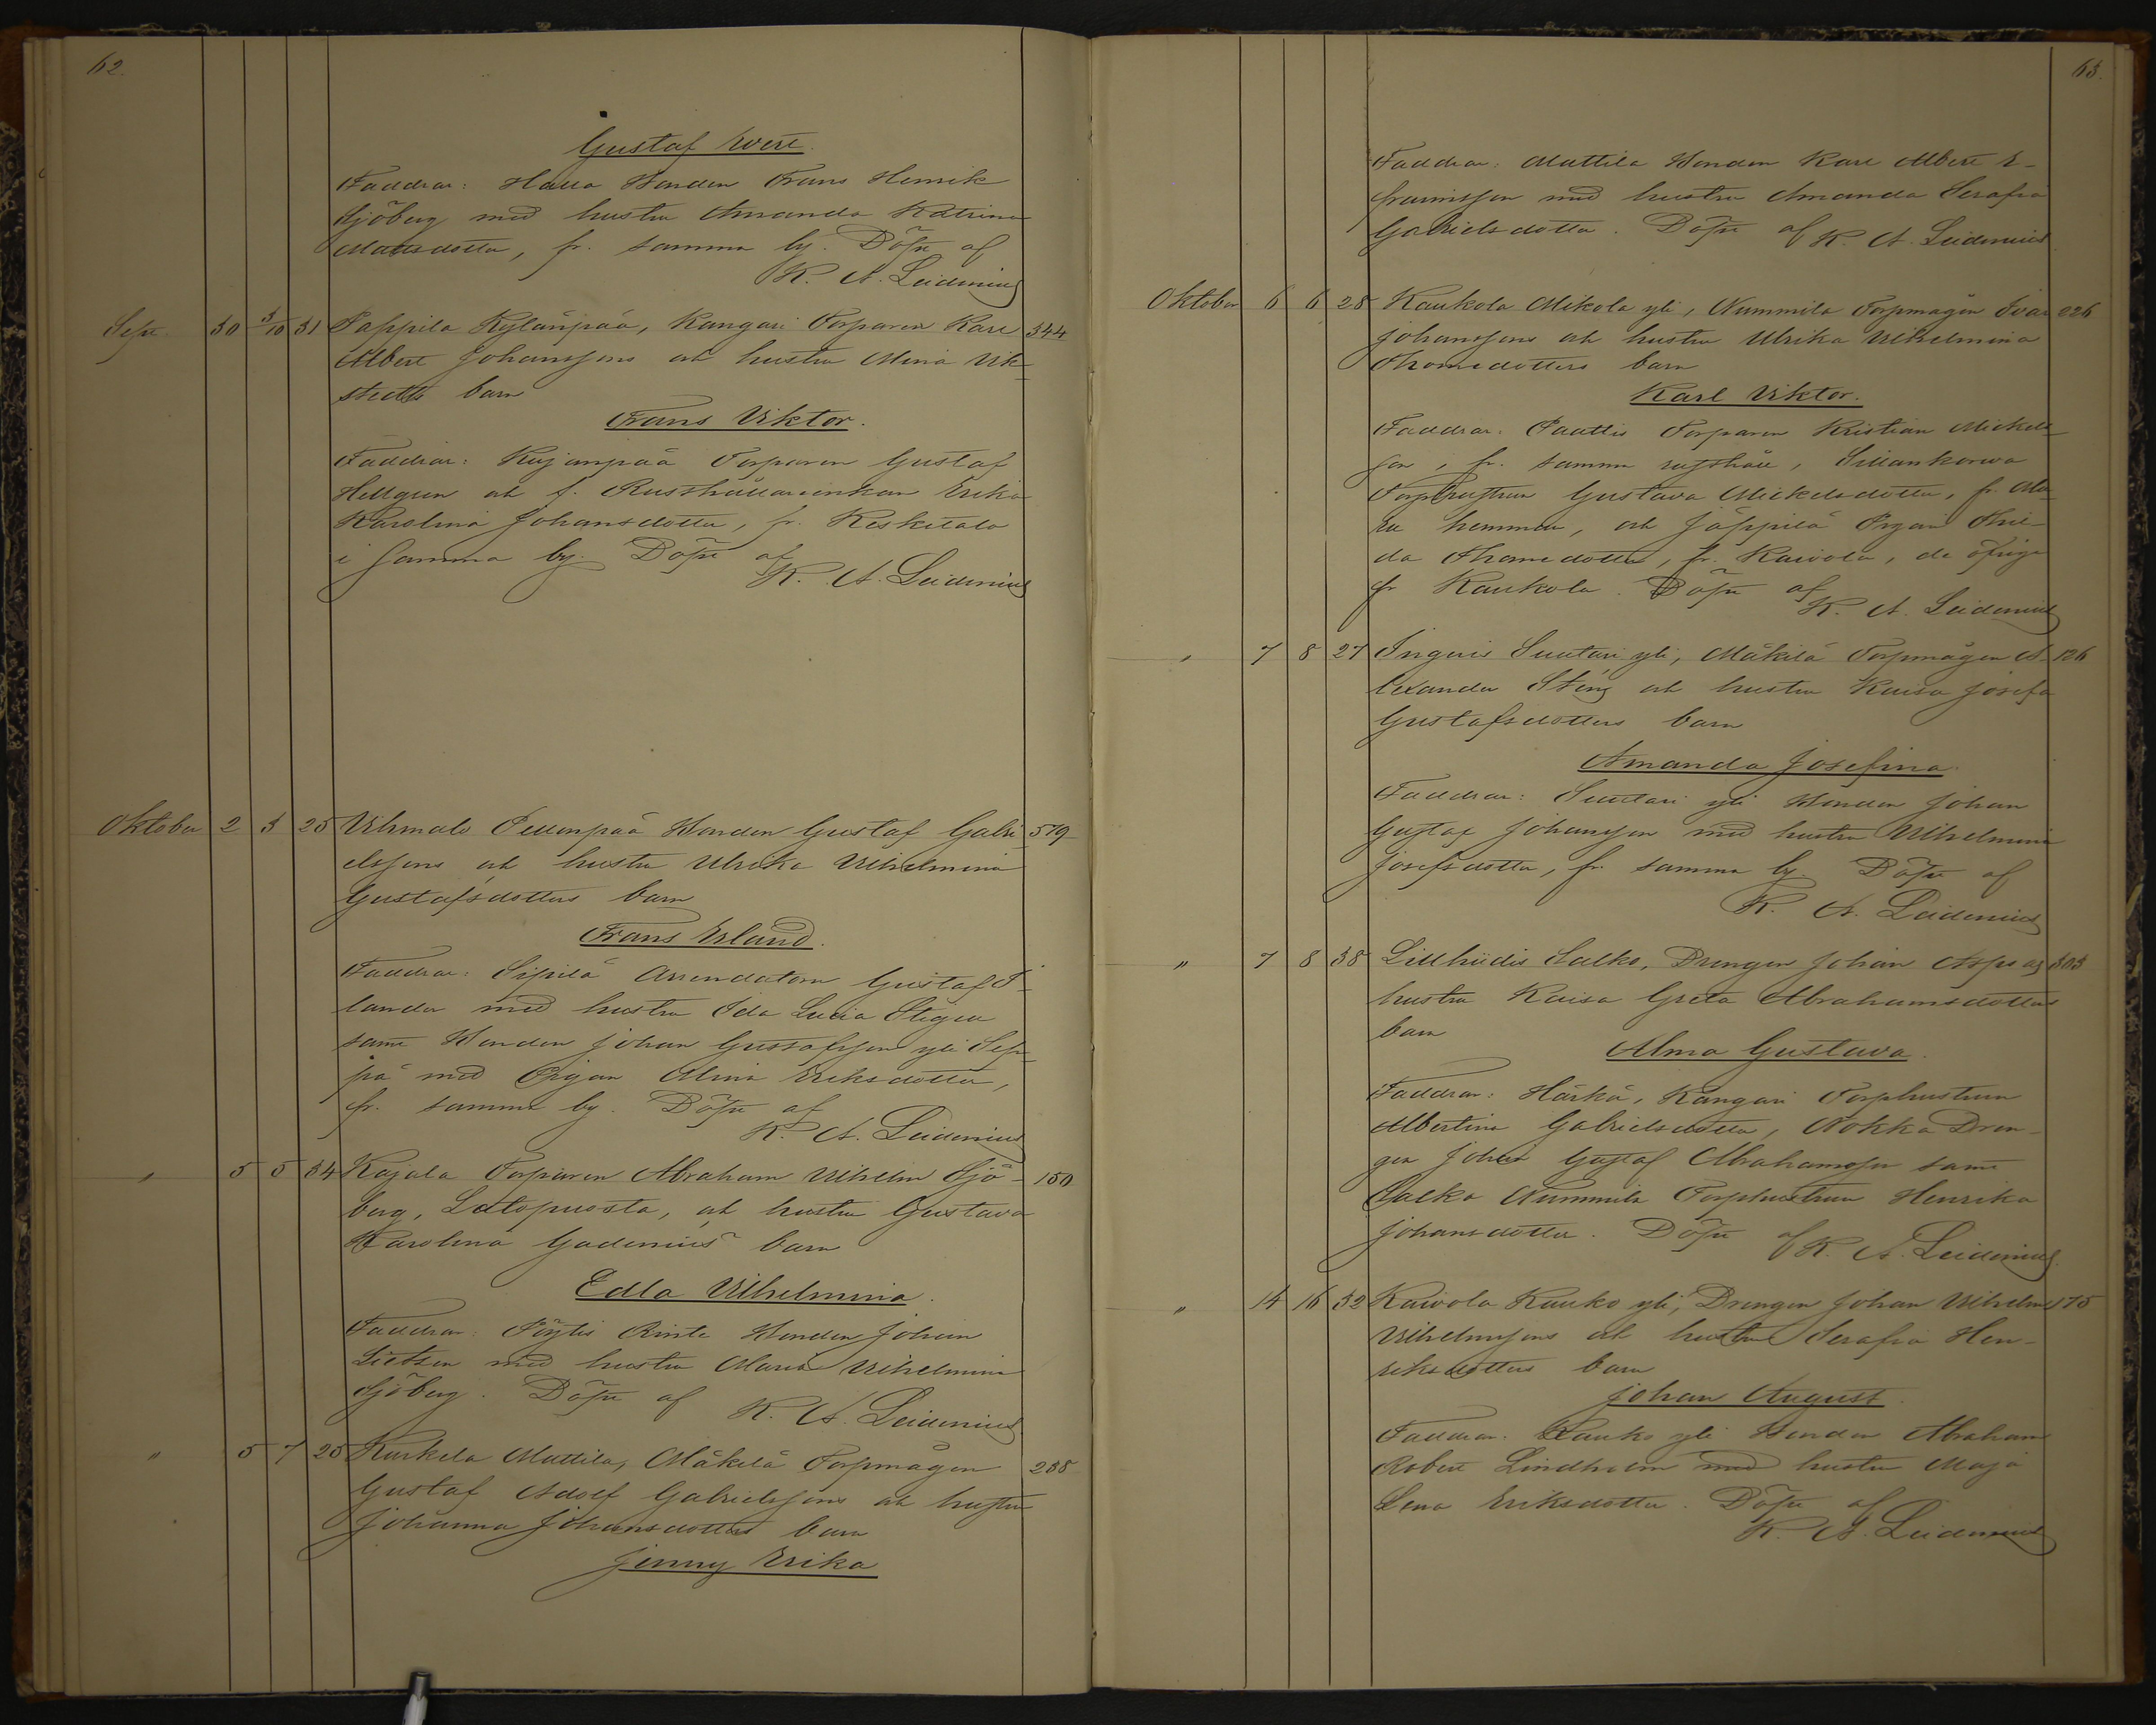 62.
Gustaf Evert.
Faddrar: Halla Bonden Frans Henrik
Sjöberg med hustru Amanda Katrina
Mattsdotter, fr. samma by. Döpt af
K. A. Leidenius
Sept. 30 3/10 31 Pappila Kylänpää, Kangari Torparen Karl 344
Albert Johanssons och hustru Mina Vik-
stedts barn
Frans Viktor.
Faddrar: Kujanpää Torparen Gustaf
Hellgren och f. Rusthållareenkan Erika
Karolina Johansdotter, fr. Keskitalo
i samma by. Döpt af
K. A. Leidenius
Oktober 2 3 25 Vihmalo Pellonpää Bonden Gustaf Gabri- 579
elssons och hustru Ulrika Vilhelmina
Gustafsdotters barn
Frans Erland.
Faddrar: Sipilä Arrendatorn Gustaf
lander med hustru Ida Lucia Stigell
samt Bonden Johan Gustafsson yli Sep-
pä med Pigan Alina Eriksdotter,
fr. samma by. Döpt af
K. A. Leidenius
" 5 5 34 Kajala Torparen Abraham Vilhelm Sjö- 150
berg, Latopuosta, och hustru Gustava
Karolina Gadenius' barn
Edla Vilhelmina.
Faddrar: Pöytis Rinta Bonden Johan
Lietzen med hustru Maria Vilhelmina
Sjöberg. Döpt af
K. A. Leidenius
" 5 7 25 Kurkela Mattila, Mäkilä Torpmågen 238
Gustaf Adolf Gabrielssons och hustru
Johanna Johansdotters barn
Jenny Erika
63.
Faddrar: Mattila Bonden Karl Albert E-
fraimsson med hustru Amanda Serafia
Gabrielsdotter. Döpt af K. A. Leidenius
Oktober 6 6 28 Kaukola Mikola yli, Nummila Torpmågen Ivar 226
Johanssons och hustru Ulrika Vilhelmina
Thomedotters barn
Karl Viktor.
Faddrar: Paattis Torparen Kristian Mickels-
son, fr. samma rusthåll, Sillankorwa
Torphustrun Gustava Mickelsdotter, fr.
hemman, och Jäppilä Pigan Hil-
da Thomedotter, fr. Kaivola, de öfriga
fr Kaukola. Döpt af
K. A. Leidenius
" 7 8 27 Ingeris Suutari yli, Mäkilä Torpmågen A- 126
lexander Sténs och hustru Kaisa Josefa
Gustafsdotters barn
Amanda Josefina.
Faddrar: Suutari yli Bonden Johan
Gustaf Johansson med hustru Vilhelmina
Josefsdotter, fr. samma by. Döpt af
K. A. Leidenius
" 7 8 38 Lillhiidis Salko, Drengen Johan 303
hustru Kaisa Greta Abrahamsdotters
barn
Alma Gustava.
Faddrar: Härkä, Kangari Torphustrun
Albertina Gabrielsdotter, Nokka Dren-
gen Johan Gustaf Abrahamsson samt
Salko Nummila Torphustrun Henrika
Johansdotter. Döpt af K. A. Leidenius
" 14 16 32 Kaivola Kauko yli, Drengen Johan Vilhelm 175
Vilhelmssons och hustru Serafia Hen-
riksdotters barn
Johan August.
Faddrar: Kauko yli Bonden Abraham
Robert Lindholm med hustru Maja
Lena Eriksdotter. Döpt af
K. A. Leidenius